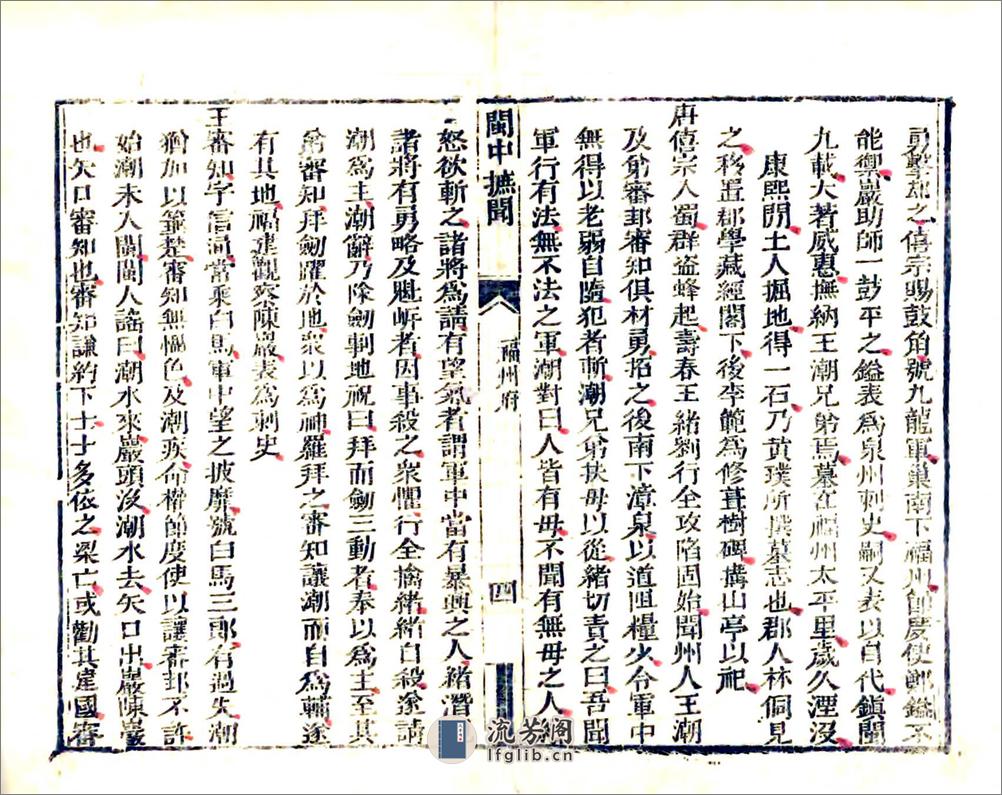 勇擊却之僖宗賜鼓角號九龍軍巢南下福州節度使鄭鎰不
能禦巖助師一鼓平之鎰表為泉州刺史嗣又表以自代鎮閩
九載大著威惠撫納王潮兄弟焉墓在福州太平里歲久湮沒
康熙間土人掘地得一石乃黃璞所撰墓志也郡人林侗見
之移置郡學藏經閣下後李範為修葺樹碑搆山亭以祀
唐僖宗入蜀群盜蜂起壽春王緒劉行全攻陷固始聞州人王潮
及弟審邽審知俱材勇招之後南下漳泉以道阻糧少令軍中
無得以老弱自隨犯者斬潮兄弟扶母以從緒切責之曰吾聞
軍行有法無不法之軍潮對曰人皆有母不聞有無母之人
閩中摭聞
福州府
四
怒欲斬之諸將為請有望氣者謂軍中當有暴興之人緒潛
諸將有勇略及魁岸者因事殺之衆懼行全擒緒緒自殺遂請
潮為主潮辭乃除劒剚地祝曰拜而劒三動者奉以為主至其
弟審知拜劒躍於地衆以為神羅拜之審知讓潮而自為輔遂
有其地福建觀察陳巖表為刺史
王審知字信通常乘白馬軍中望之披靡號白馬三郎有過失潮
猶加以箠楚審知無慍色及潮疾命權節度使以讓審邽不許
始潮未入閩閩人謠曰潮水來巖頭沒潮水去矢口出巖陳巖
也矢口審知也審知謙約下士士多依之梁亡或勸其建國審
流芳閣
lfglib.cn